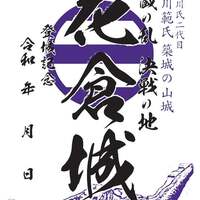 川氏二代目
川範氏 築城の山城
の乱 決戦の地
花倉城
登城記念
令和 年 月 日